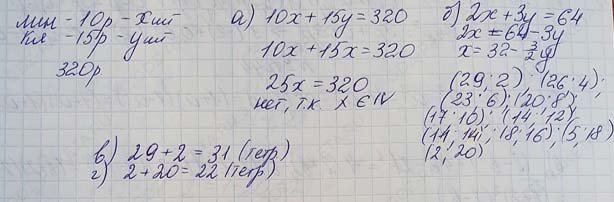 лин - 10р - x шт
кл - 15р - y шт
320р
а) 10x + 15y = 320
10x + 15x = 320
25x = 320
нет, т.к x ∈ N
б) 2x + 3y = 64
2x = 64 - 3y
x = 32 - 3/2 y
(29; 2), (26; 4);
(23; 6); (20; 8);
(17; 10); (14; 12);
(14; 14); (8; 16); (5; 18)
(2; 20)
в) 29 + 2 = 31 (тетр)
г) 2 + 20 = 22 (тетр)